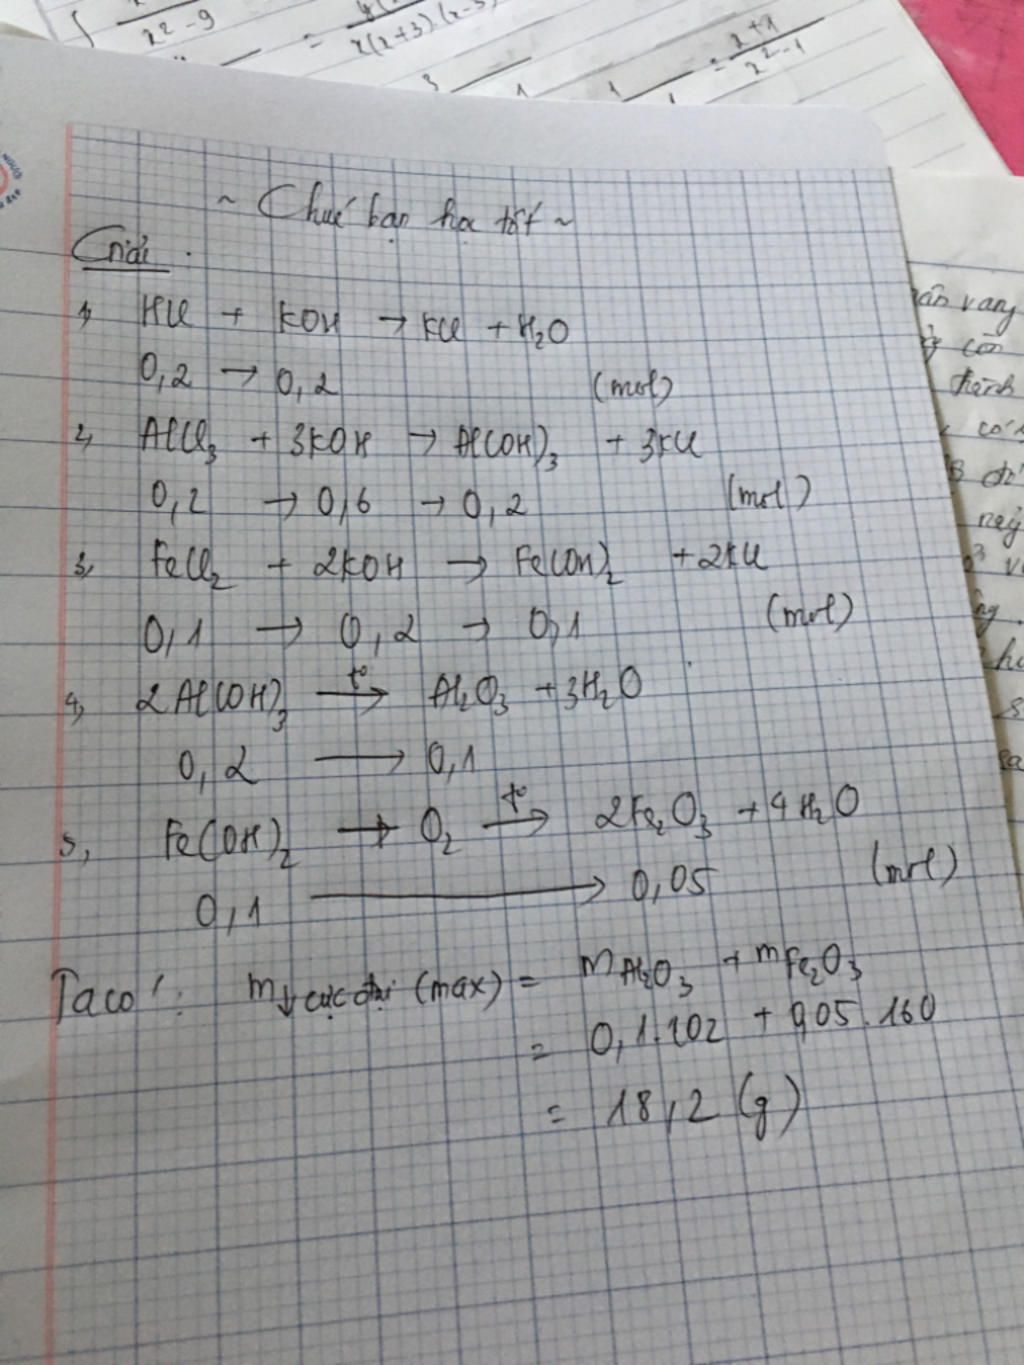 x² - 9
=
x(x+3).(x-3)
3
1
1
= x+1
x² - 1
~ Chúc bạn học tốt ~
Giải :
1, HCl + KOH → KCl + H₂O
0,2 → 0,2 (mol)
2, AlCl₃ + 3KOH → Al(OH)₃ + 3KCl
0,2 → 0,6 → 0,2 (mol)
3, FeCl₂ + 2KOH → Fe(OH)₂ + 2KCl
0,1 → 0,2 → 0,1 (mol)
4, 2Al(OH)₃ —t°→ Al₂O₃ + 3H₂O
0,2 → 0,1
5, Fe(OH)₂ → O₂ —t°→ 2Fe₂O₃ + 4H₂O
0,1 → 0,05 (mol)
Ta có : m↓ cực đại (max) = mAl₂O₃ + mFe₂O₃
= 0,1.102 + 0,05.160
= 18,2 (g)
vang
còn
thành
này